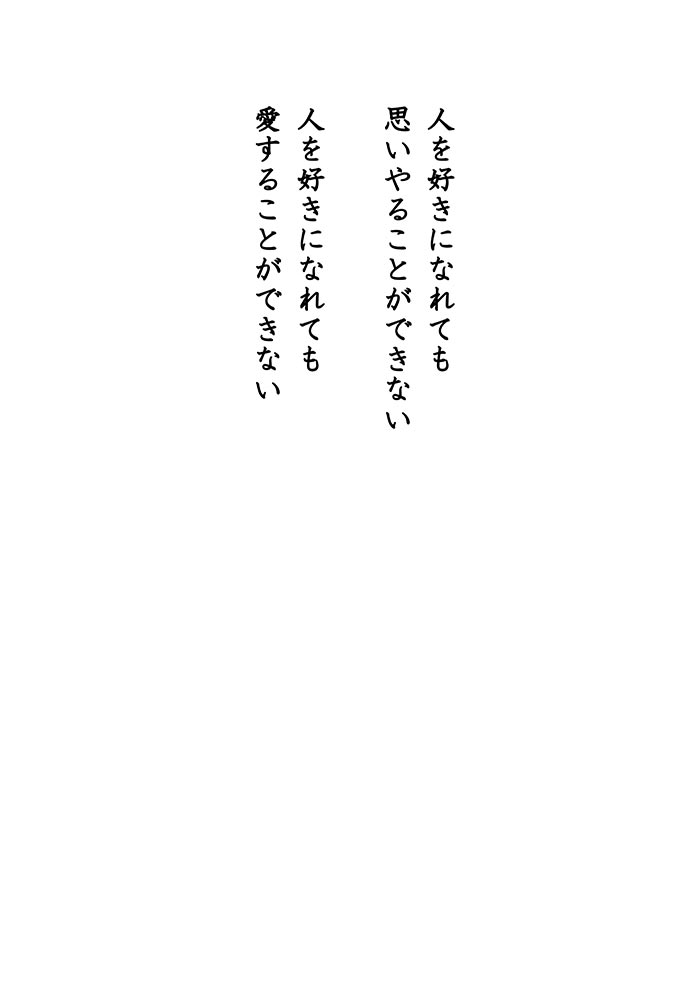 人を好きになれても
思いやることができない
人を好きになれても
愛することができない